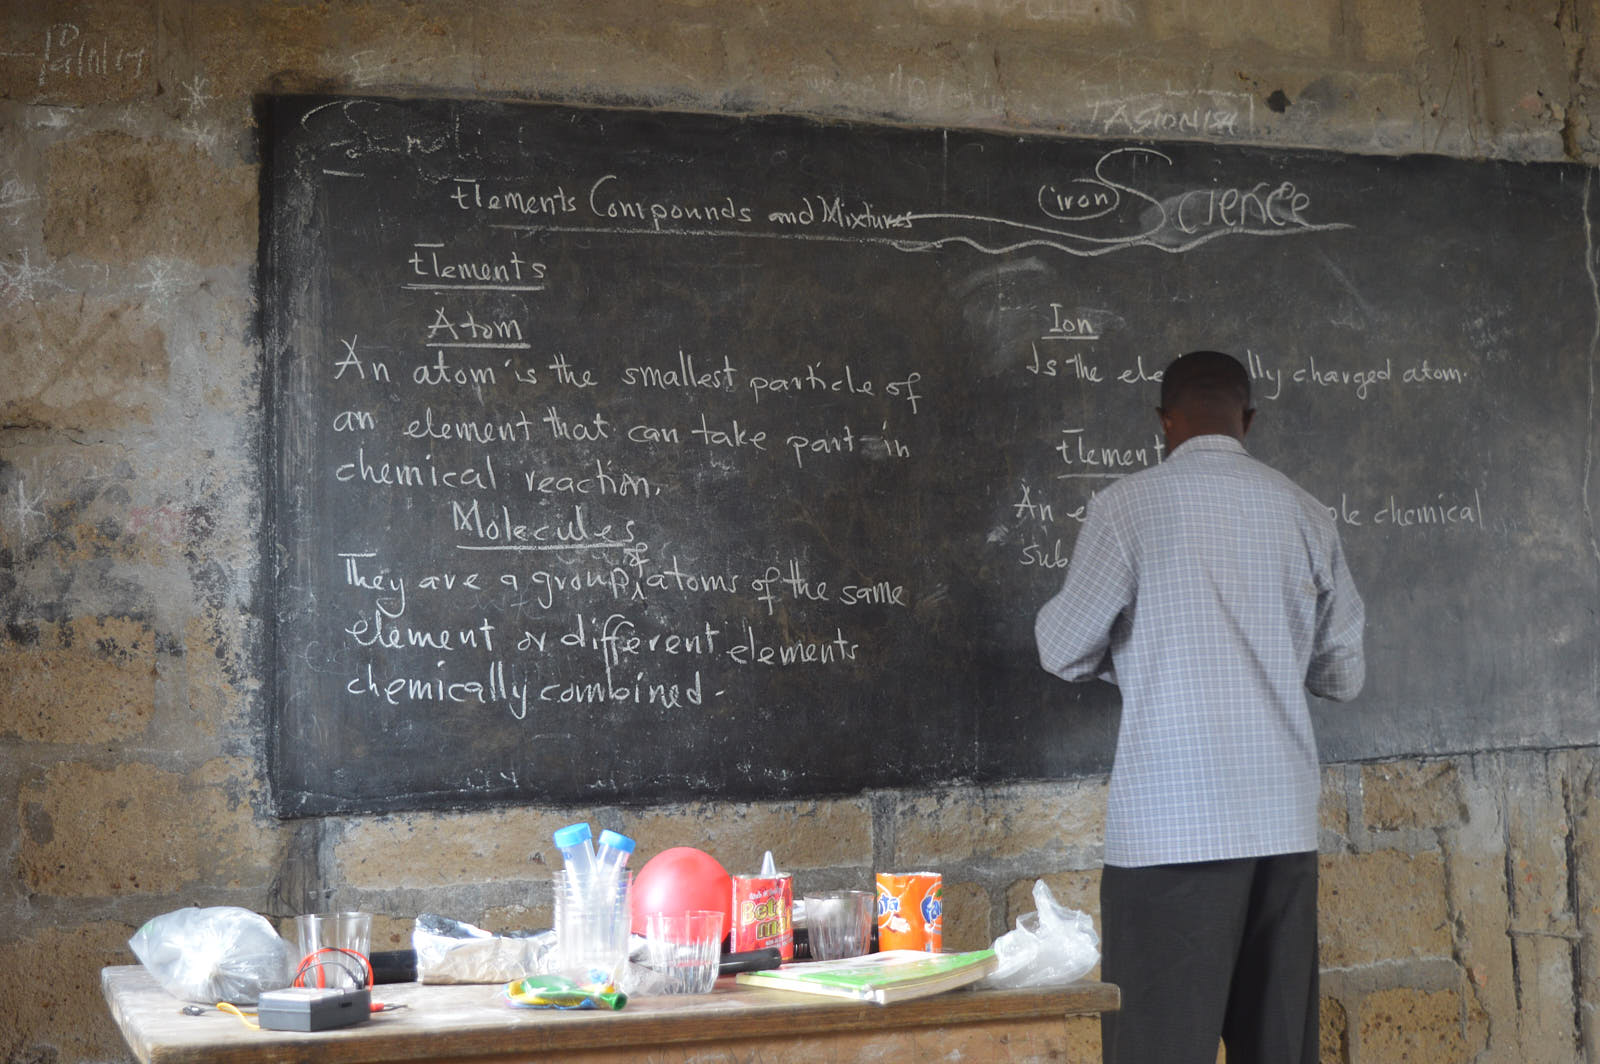 TASIONISH
Elements Compounds and Mixtures
(iron) Science
Elements
Atom
An atom is the smallest particle of
an element that can take part in
chemical reaction.
Molecules
They are a group of atoms of the same
element or different elements
chemically combined.
Ion
Is the ele lly charged atom.
Element
An e ple chemical
sub
Beta
malt
Fanta